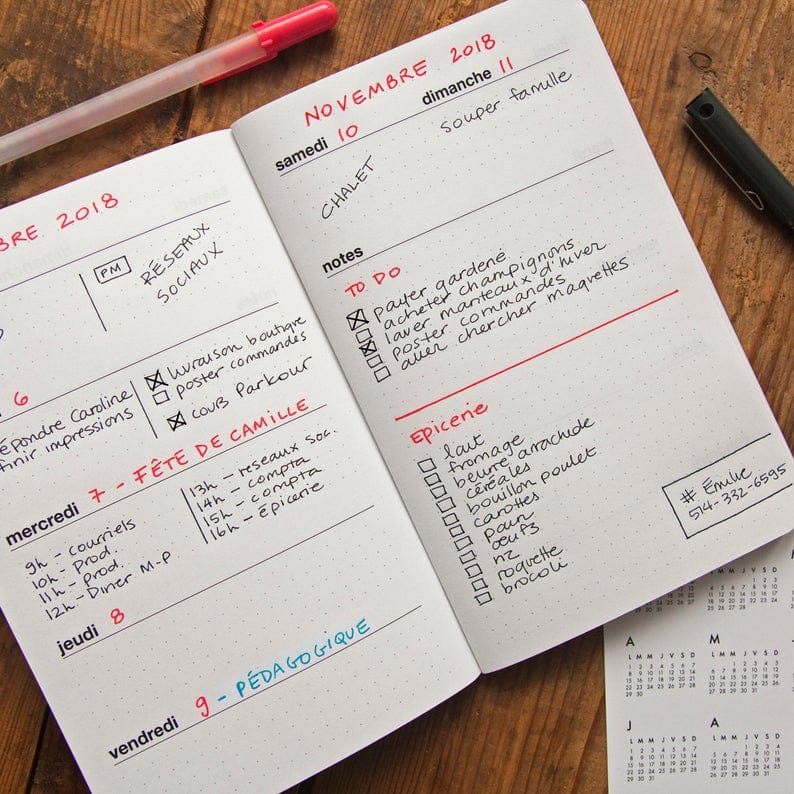 BRE 2018
PM
RÉSEAUX
SOCIAUX
6
épondre Caroline
finir impressions
livraison boutique
poster commandes
cours Parkour
mercredi 7 - FÊTE DE CAMILLE
9h - courriels
10h - Prod.
11h - Prod.
12h - Diner M-P
13h - reseaux soc.
14h - compta
15h - compta
16h - épicerie
jeudi 8
vendredi 9 - PÉDAGOGIQUE
NOVEMBRE 2018
samedi 10
dimanche 11
CHALET
souper famille
notes
TO DO
payer garderie
acheter champignons
laver manteaux d'hiver
poster commandes
aller chercher maquettes
Epicerie
lait
fromage
beurre arrachide
céréales
bouillon poulet
carottes
pain
oeufs
riz
roquette
brocoli
# Émilie
514-332-6595
A
L M M J V S D
M
L M M J V S D
J
L M M J V S D
A
L M M J V S D